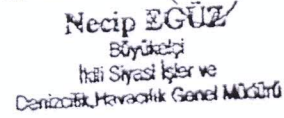 Necip EGÜZ
Büyükelçi
İkili Siyasi İşler ve
Denizcilik, Havacılık Genel Müdürü